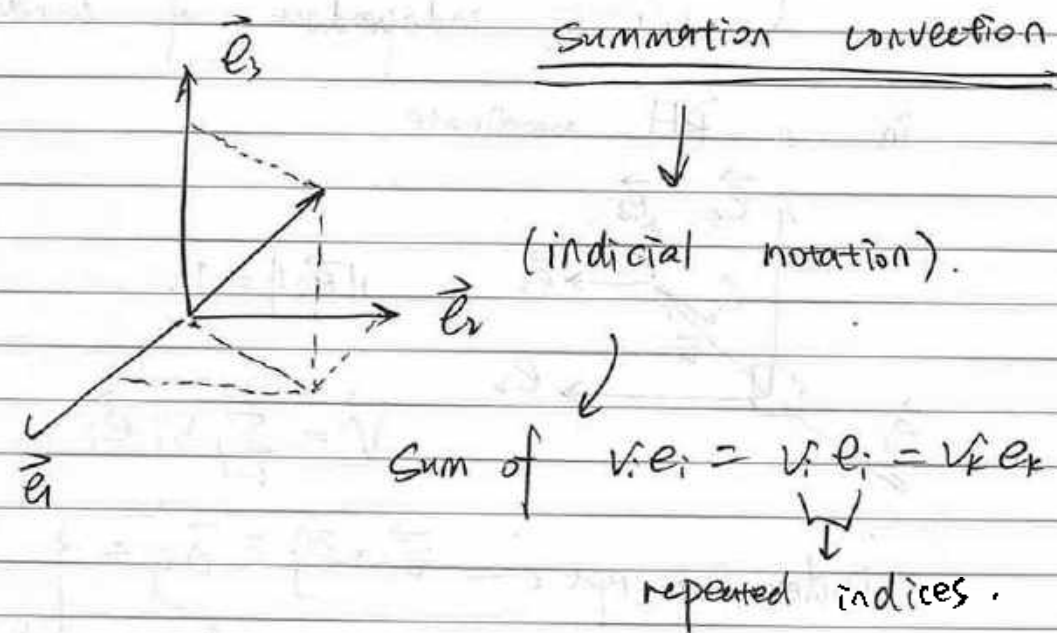 Summation convection
e⃗₃
(indicial notation).
e⃗₂
e⃗₁
Sum of vᵢeᵢ = vᵢeᵢ = vₖeₖ
repeated indices.